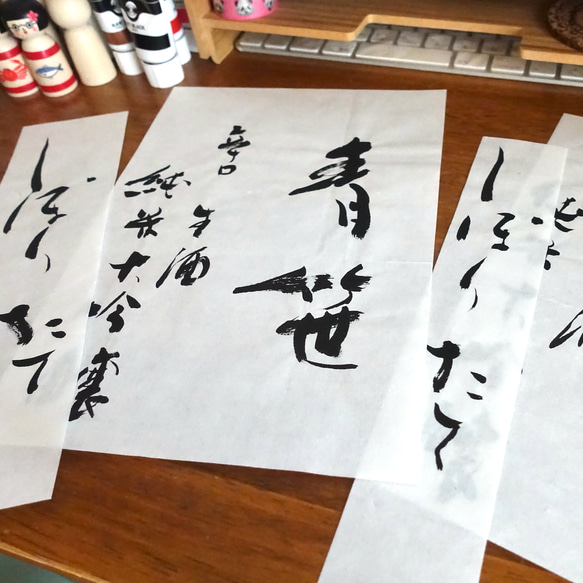 しぼりたて
青笹
辛口
生酒
純米大吟
しぼりたて